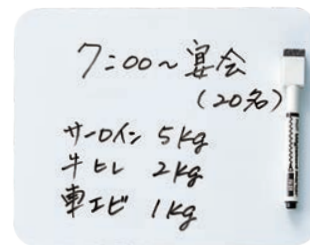 7:00～宴会
(20名)
サーロイン 5kg
牛ヒレ 2kg
車エビ 1kg